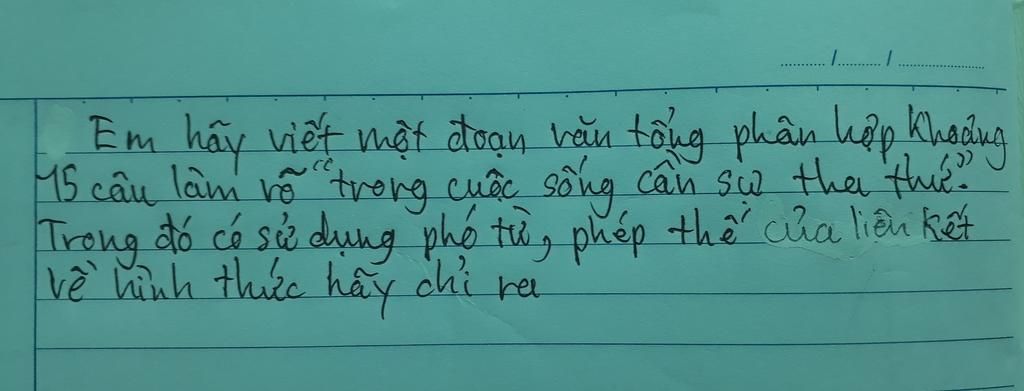 Em hãy viết một đoạn văn tổng phân hợp khoảng
15 câu làm rõ "trong cuộc sống cần sự tha thứ".
Trong đó có sử dụng phó từ, phép thế của liên kết
về hình thức hãy chỉ ra